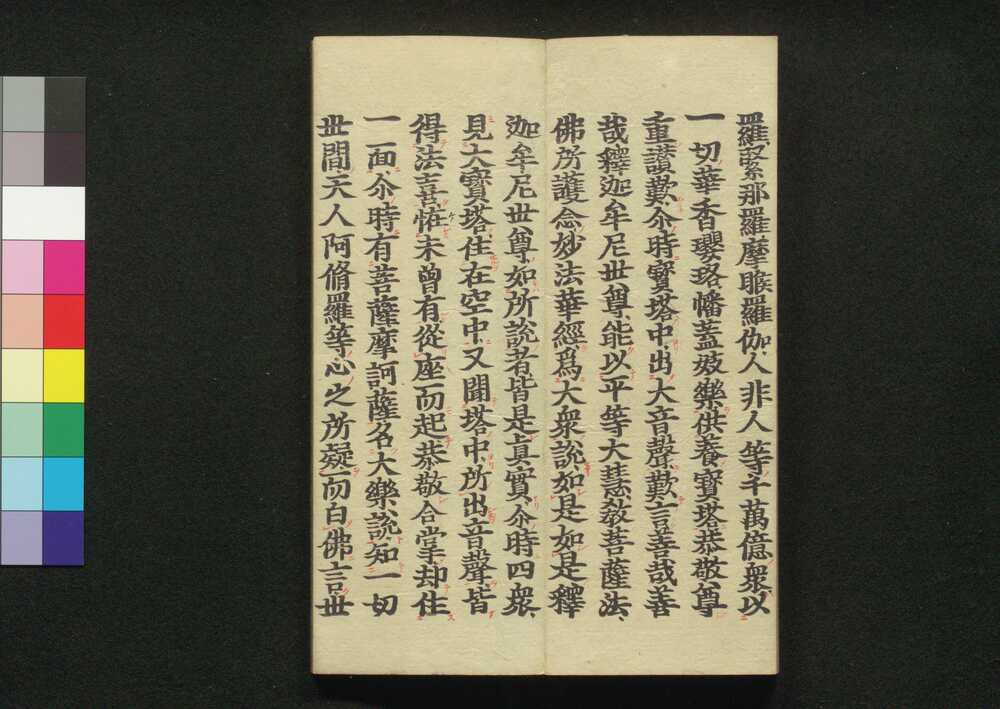 羅緊那羅摩睺羅伽人非人等千萬億衆以
一切華香瓔珞幡蓋妓樂供養寶塔恭敬尊
重讃歎尒時寶塔中出大音聲歎言善哉善
哉釋迦牟尼世尊能以平等大慧敎菩薩法
佛所護念妙法華經爲大衆說如是如是釋
迦牟尼世尊如所說者皆是真實尒時四衆
見大寶塔住在空中又聞塔中所出音聲皆
得法喜恠未曾有從座而起恭敬合掌却住
一面尒時有菩薩摩訶薩名大樂說知一切
世間天人阿脩羅等心之所疑而白佛言世